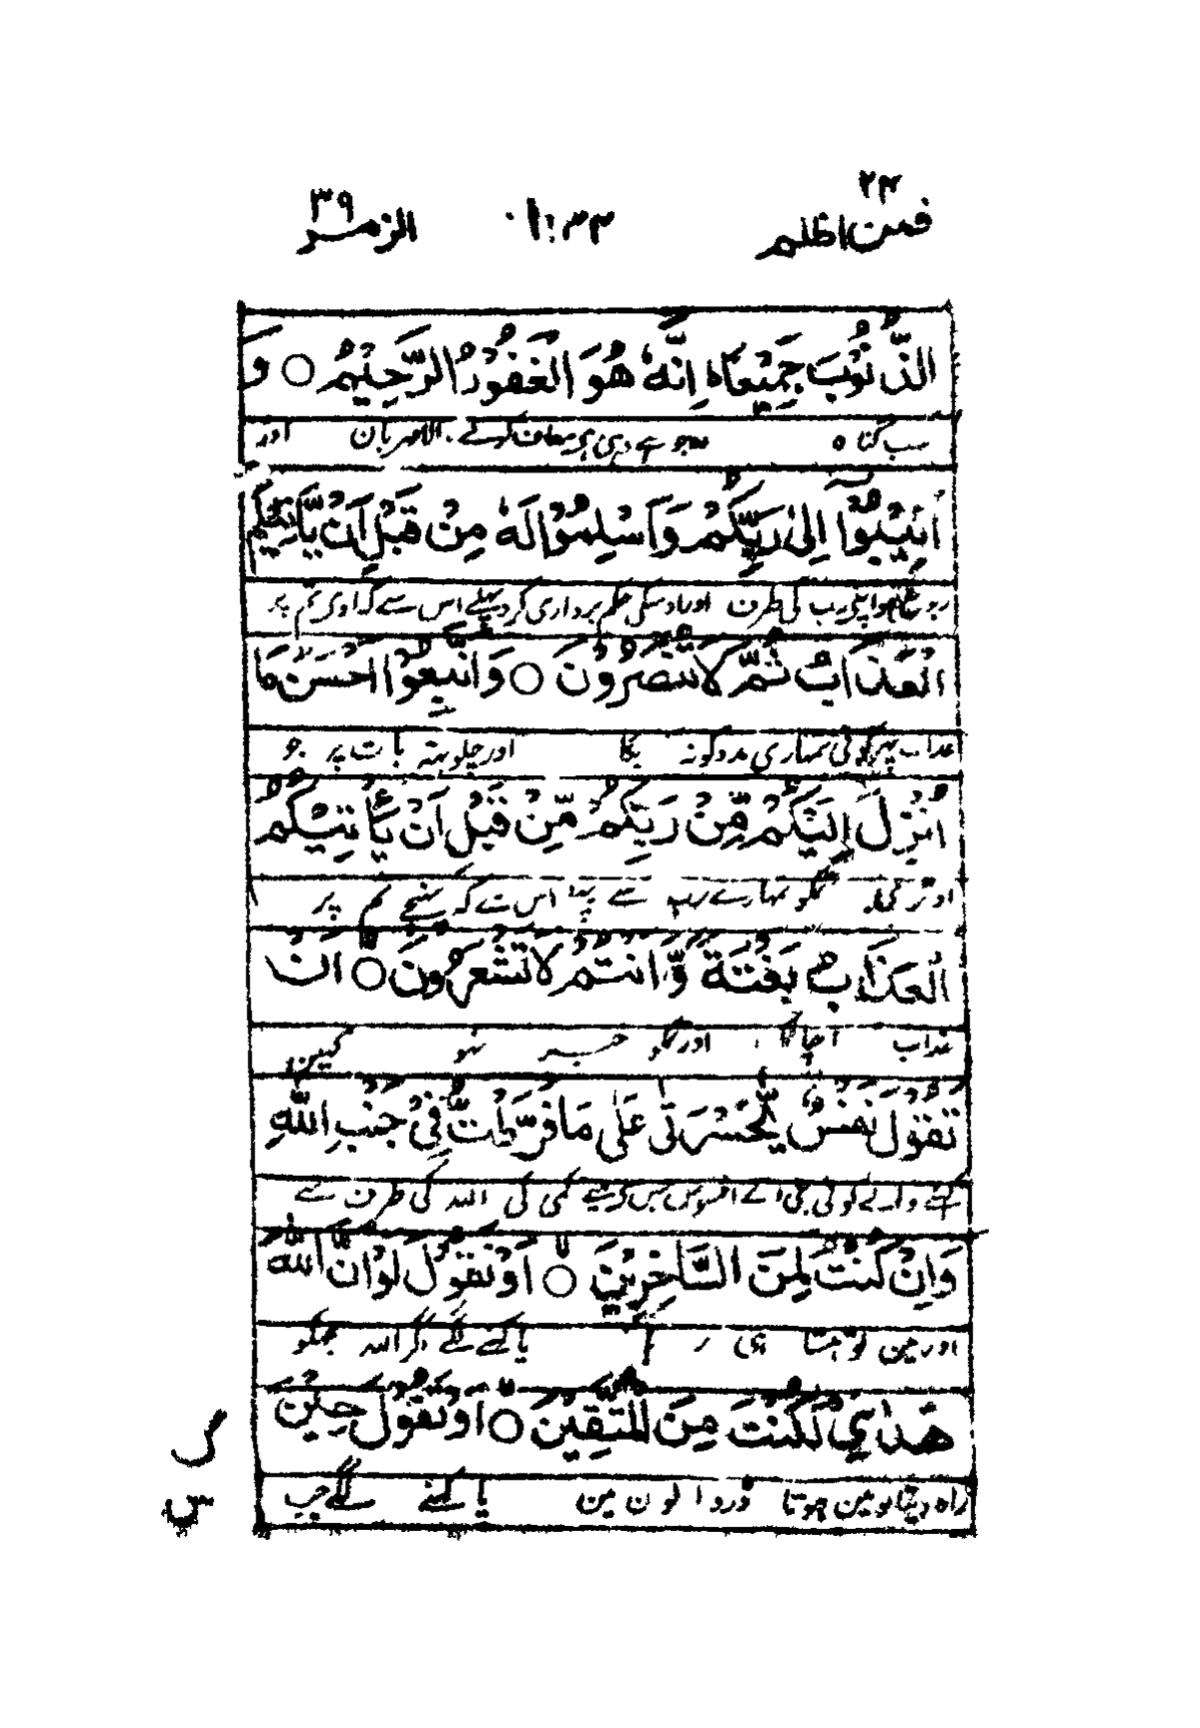 ۲۴ ۳۹
فمن اظلم ۱۰۳۳ الزمر
الذُّنُوْبَ جَمِيْعًا ؕ اِنَّهٗ هُوَ الْغَفُوْرُ الرَّحِيْمُ ○ وَ
سب گناہ وہ جو ہے وہی ہی معاف کرنے مہربان اور
اَنِيْبُوْۤا اِلٰى رَبِّكُمْ وَاَسْلِمُوْا لَهٗ مِنْ قَبْلِ اَنْ يَّاْتِيَكُمُ
رجوع ہو اپنی رب کی طرف اور اوسکی حکم برداری کرو پہلے اس سے کہ اوے تم پر
الْعَذَابُ ثُمَّ لَا تُنْصَرُوْنَ ○ وَاتَّبِعُوْۤا اَحْسَنَ مَاۤ
عذاب پھر کوئی تمہاری مدد کو نہ اور چلو بہتر بات پر جو
اُنْزِلَ اِلَيْكُمْ مِّنْ رَّبِّكُمْ مِّنْ قَبْلِ اَنْ يَّاْتِيَكُمُ
اوتری تمکو تمہارے رب سے اس سے کہ پہنچے تم پر
الْعَذَابُ بَغْتَةً وَّاَنْتُمْ لَا تَشْعُرُوْنَ ○ اَنْ
عذاب اچانک اور تمکو خبر نہو کہیں
تَقُوْلَ نَفْسٌ يّٰحَسْرَتٰى عَلٰى مَا فَرَّطْتُّ فِيْ جَنْبِ اللّٰهِ
کہنے لگے کوئی جی اے افسوس جس کمی کی اللہ کی طرف سے
وَاِنْ كُنْتُ لَمِنَ السَّاخِرِيْنَ ○ اَوْ تَقُوْلَ لَوْ اَنَّ اللّٰهَ
اور میں تو ہنستا ہی یا کہنے لگے اگر اللہ مجھکو
هَدٰىنِيْ لَكُنْتُ مِنَ الْمُتَّقِيْنَ ○ اَوْ تَقُوْلَ حِيْنَ
راہ دیتا تو میں ہوتا ڈر والوں میں یا کہنے لگے جب